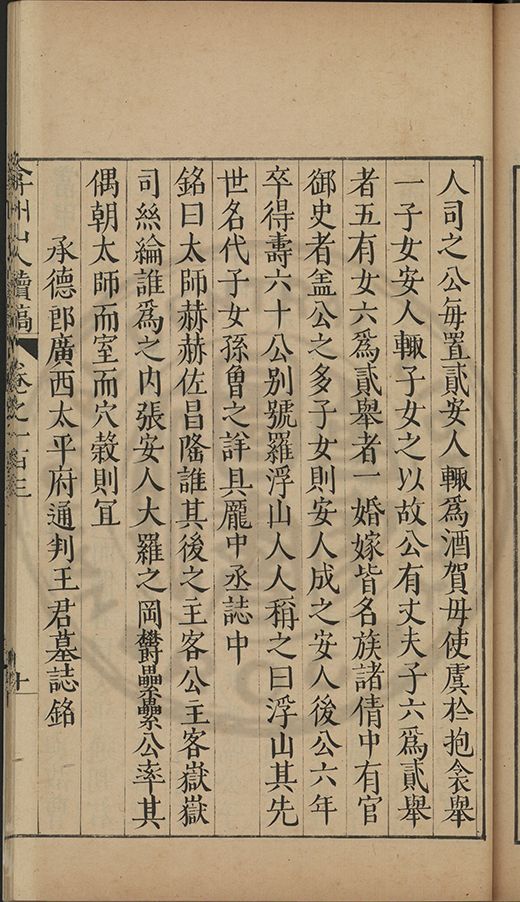 人司之公每置貳安人輙爲酒賀毋使虞於抱衾舉
一子女安人輙子女之以故公有丈夫子六爲貳舉
者五有女六爲貳舉者一婚嫁皆名族諸倩中有官
御史者盖公之多子女則安人成之安人後公六年
卒得壽六十公别號羅浮山人人稱之曰浮山其先
世名代子女孫曾之詳具龐中丞誌中
銘曰太師赫赫佐昌隆誰其後之主客公主客嶽嶽
司絲綸誰爲之内張安人大羅之岡欝纍纍公率其
偶朝太師而室而穴榖則冝
承德郎廣西太平府通判王君墓誌銘
弇州山人續稿 卷之一百三 十